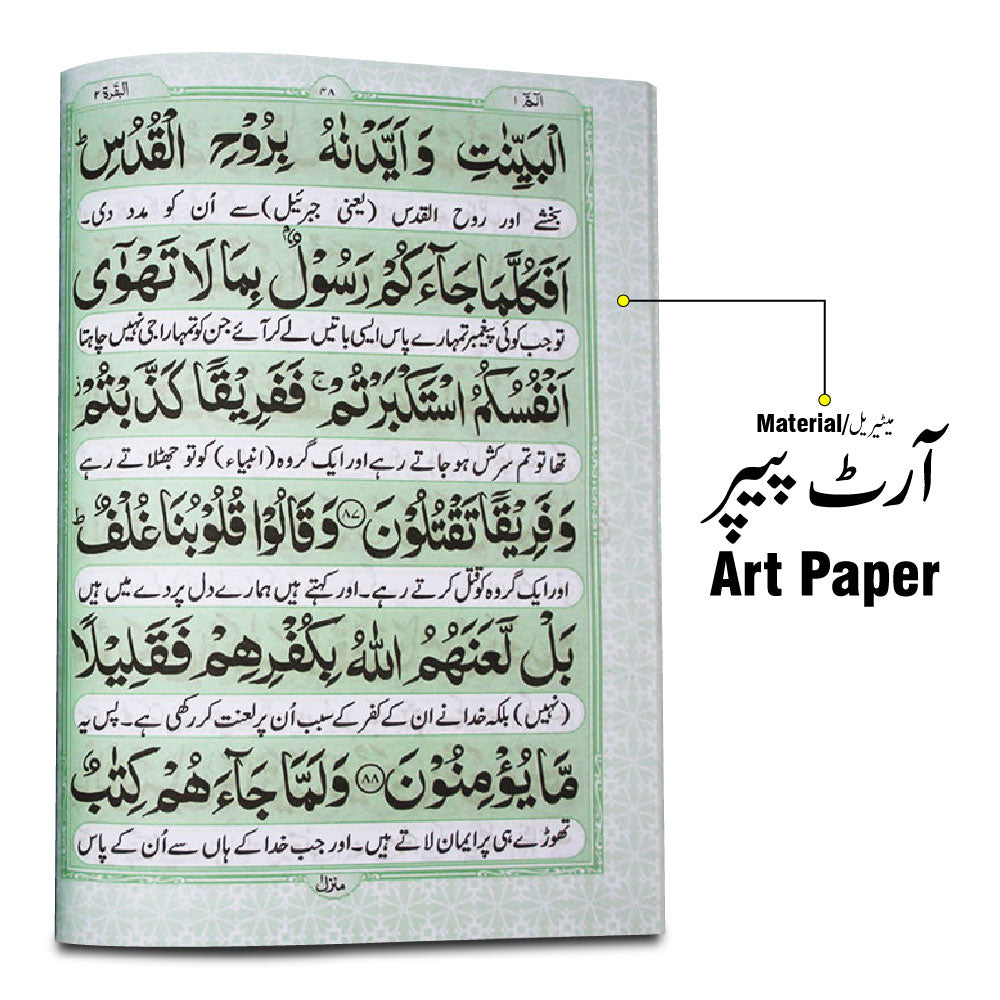 الٓمّٓ ۱ ۴۸ البقرة ۲
الْبَيِّنٰتِ وَاَيَّدْنٰهُ بِرُوْحِ الْقُدُسِ ؕ
بخشے اور روح القدس (یعنی جبرئیل) سے اُن کو مدد دی۔
اَفَكُلَّمَا جَآءَكُمْ رَسُوْلٌۢ بِمَا لَا تَهْوٰٓى
تو جب کوئی پیغمبر تمہارے پاس ایسی باتیں لے کر آئے جن کو تمہارا جی نہیں چاہتا
اَنْفُسُكُمُ اسْتَكْبَرْتُمْ ۚ فَفَرِيْقًا كَذَّبْتُمْ ؗ
تھا تو تم سرکش ہو جاتے رہے اور ایک گروہ (انبیاء) کو تو جھٹلاتے رہے
وَفَرِيْقًا تَقْتُلُوْنَ ﴿۸۷﴾ وَقَالُوْا قُلُوْبُنَا غُلْفٌ ؕ
اور ایک گروہ کو قتل کرتے رہے۔ اور کہتے ہیں ہمارے دل پردے میں ہیں
بَلْ لَّعَنَهُمُ اللّٰهُ بِكُفْرِهِمْ فَقَلِيْلًا
(نہیں) بلکہ خدا نے ان کے کفر کے سبب اُن پر لعنت کر رکھی ہے۔ پس یہ
مَّا يُؤْمِنُوْنَ ﴿۸۸﴾ وَلَمَّا جَآءَهُمْ كِتٰبٌ
تھوڑے ہی پر ایمان لاتے ہیں۔ اور جب خدا کے ہاں سے اُن کے پاس
منزل
Material/میٹیریل
آرٹ پیپر
Art Paper